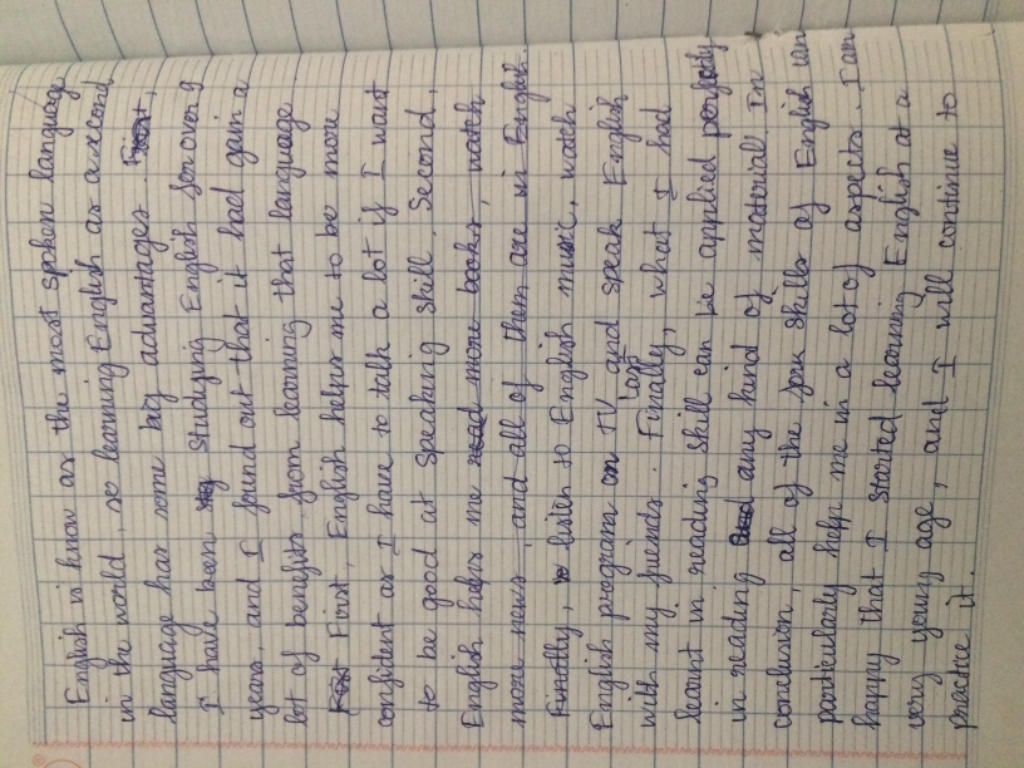 English is know as the most spoken language
in the world, so learning English as a second
language has some big advantages.
I have been studying English for over 9
years, and I found out that it had gain a
lot of benefits from learning that language
First, English helps me to be more
confident as I have to talk a lot if I want
to be good at speaking skill. Second,
English helps me read more books, watch
more news, and all of them are in English.
listen to English music, watch
English program on TV and speak English
with my friends. Last Finally, what I had
learnt in reading skill can be applied perfectly
in reading any kind of material. In
conclusion, all of the four skills of English can
particularly help me in a lot of aspects. I am
happy that I started learning English at a
very young age, and I will continue to
practice it.